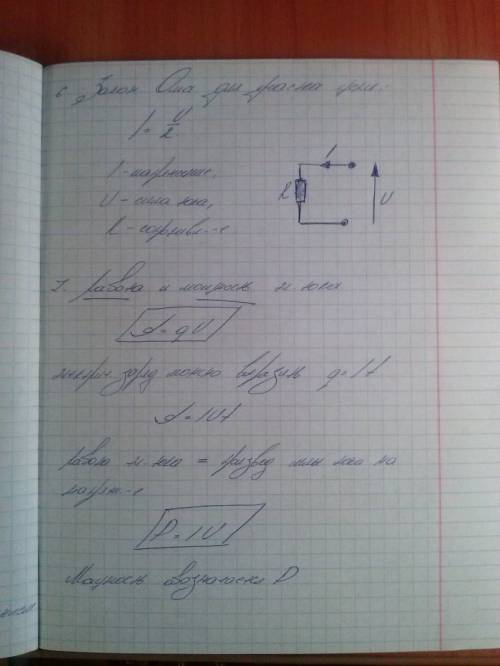 6. Закон Ома для участка цепи:
I = U/R
I - напряжение,
U - сила тока,
R - сопротивл-е
I
R
U
7. Работа и мощность эл. тока
A = qU
электрич. заряд можно выразить q = It
A = IUt
Работа эл. тока = произвед. силы тока на
напряж-е
P = IU
Мощность обозначается P